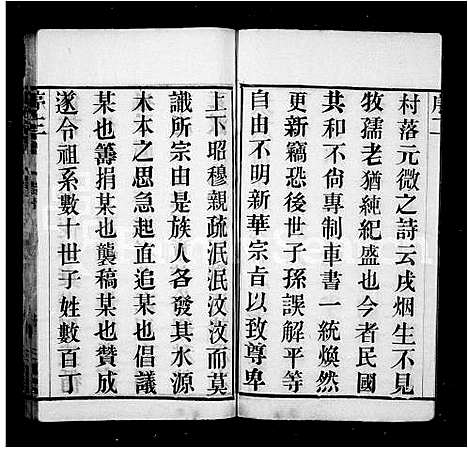 村落元微之詩云戌烟生不見
牧孺老猶純紀盛也今者民國
共和不尙專制車書一統煥然
更新竊恐後世子孫誤解平等
自由不明新華宗旨以致尊卑
上下昭穆親疏泯泯汶汶而莫
識所宗由是族人各發其水源
木本之思急起直追某也倡議
某也籌捐某也襲稿某也贊成
遂令祖系數十世子姓數百丁